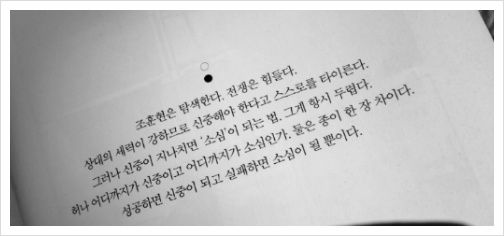 조훈현은 탐색한다. 전쟁은 힘들다.
상대의 세력이 강하므로 신중해야 한다고 스스로를 타이른다.
그러나 신중이 지나치면 '소심'이 되는 법. 그게 항시 두렵다.
허나 어디까지가 신중이고 어디까지가 소심인가. 둘은 종이 한 장 차이다.
성공하면 신중이 되고 실패하면 소심이 될 뿐이다.